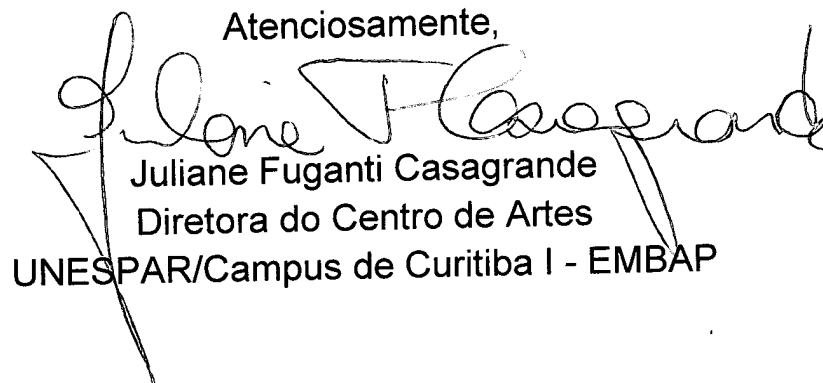 Atenciosamente,
Juliane F Casagrande
Juliane Fuganti Casagrande
Diretora do Centro de Artes
UNESPAR/Campus de Curitiba I - EMBAP